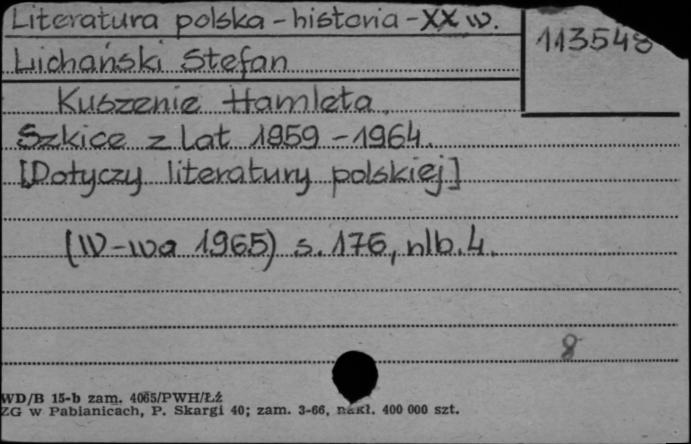 Literatura polska - historia - XX w.
113548
Lichański Stefan
Kuszenie Hamleta.
Szkice z lat 1959 - 1964.
[Dotyczy literatury polskiej]
(W-wa 1965) s. 176, nlb. 4.
8
WD/B 15-b zam. 4065/PWH/Łź
ZG w Pabianicach, P. Skargi 40; zam. 3-66, nakł. 400 000 szt.